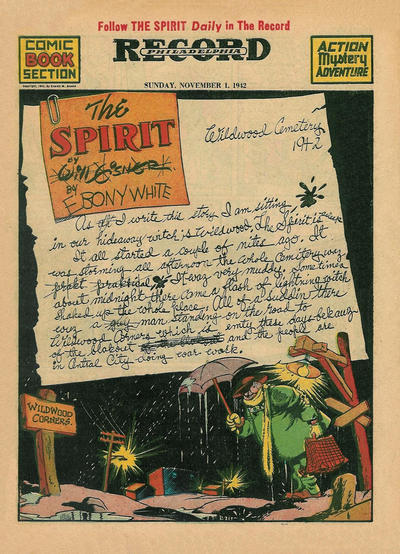 Follow THE SPIRIT Daily in The Record
COMIC
BOOK
SECTION
RECORD
PHILADELPHIA
ACTION
Mystery
ADVENTURE
SUNDAY, NOVEMBER 1, 1942
The
SPIRIT
BY
Will Eisner
BY
EBONY WHITE
Wildwood Cemetery
1942
As I write dis story I am sitting
in our hideaway witch is Wildwood. The Spirit is
It all started a couple of nites ago. It
was storming all afternoon the whole Cemetery waz
It waz very muddy. Sometime
about midnight there came a flash of lightning witch
shaked up the whole place. All of a suddin there
wuz a man standing on the road to
Wildwood Corners which is emty these days becauz
of the blakout and the people are
in Central City doing war work.
WILDWOOD
CORNERS.